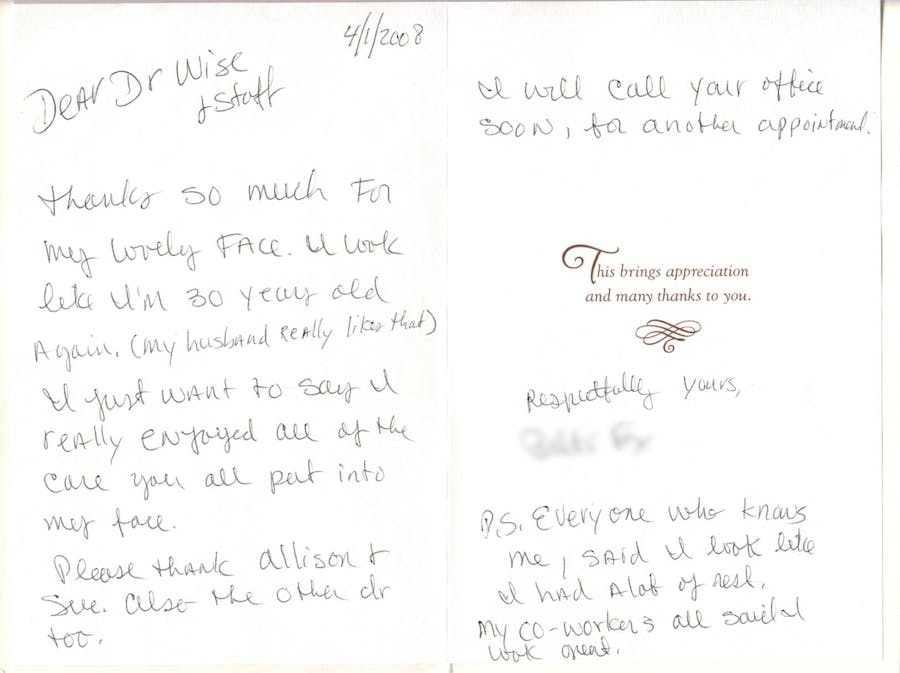 4/1/2008
Dear Dr Wise
& Staff
Thanks so much For
my lovely FACE. I look
like I'm 30 years old
Again. (my husband Really likes that)
I just want to say I
really enjoyed all of the
care you all put into
my face.
Please thank Allison &
Sue. Also the other dr
too.
I will call your office
soon, for another appointment.
This brings appreciation
and many thanks to you.
Respectfully yours,
P.S. Everyone who knows
me, said I look like
I had a lot of rest.
My co-workers all said I
look great.